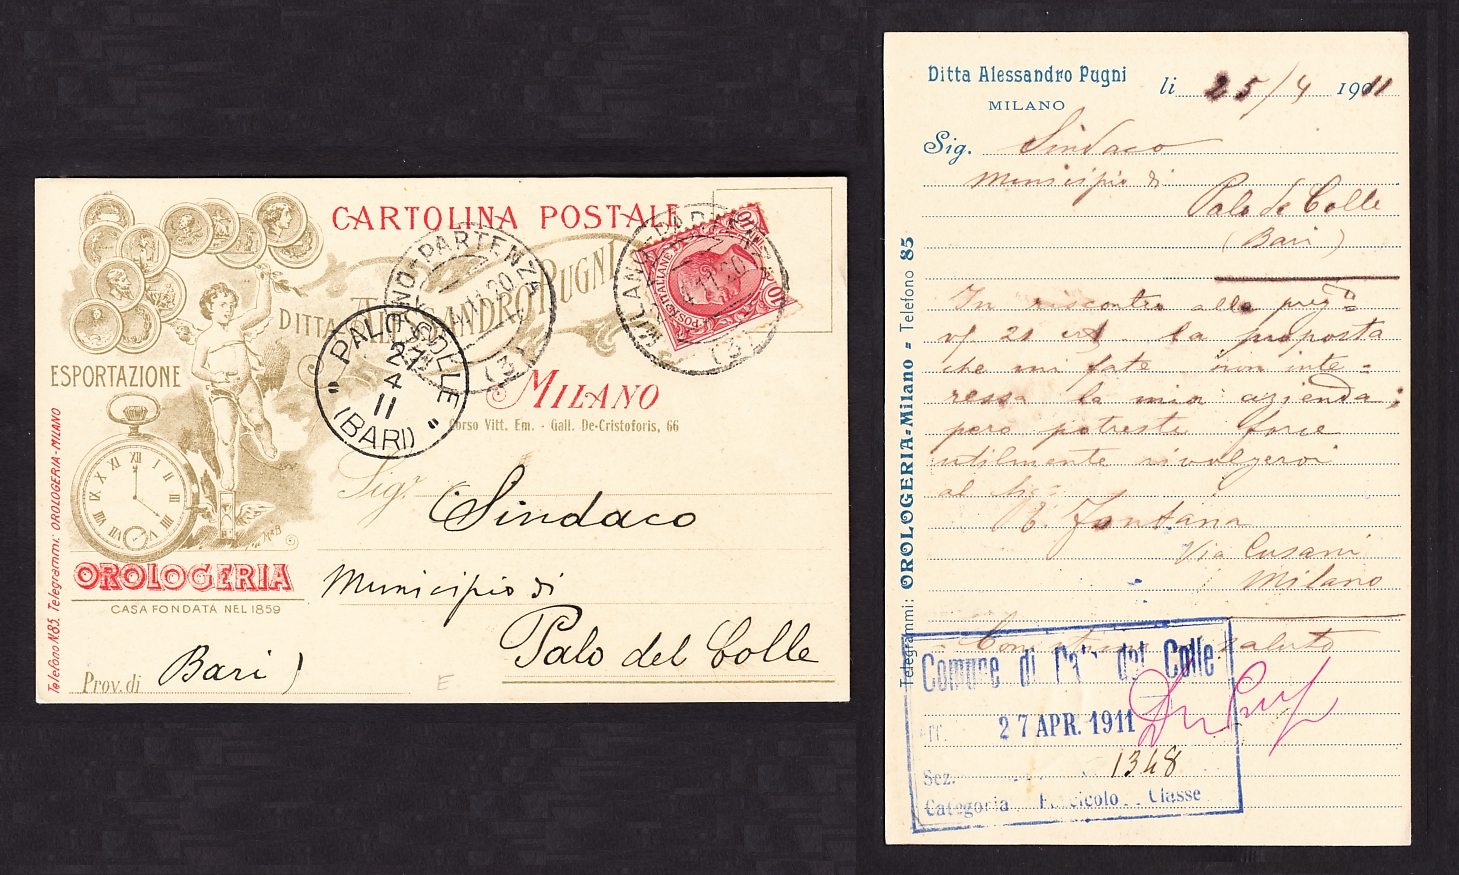 CARTOLINA POSTALE
DITTA ALESSANDRO PUGNI
MILANO
Corso Vitt. Em. - Gall. De-Cristoforis, 66
ESPORTAZIONE
XII
OROLOGERIA
CASA FONDATA NEL 1859
Telefono N. 85. Telegrammi: OROLOGERIA-MILANO
MILANO-PARTENZA
11.20
(3)
MILANO-PARTENZA
11.20
(3)
POSTE ITALIANE
10
10
"PALO COLLE"
27
4
11
(BARI)
Sigr. Sindaco
Municipio di
Palo del Colle
Prov. di Bari)
E
Ditta Alessandro Pugni
MILANO
li 25/4 1911
Sig. Sindaco
Municipio di
Palo de Colle
(Bari)
In riscontro alla preg.
21 la proposta
che mi fate non inte=
ressa la mia azienda;
però potreste forse
utilmente rivolgervi
al Sig.
E. Fontana
Via Cusani
Milano
Con stima saluto
Telegrammi: OROLOGERIA-Milano - Telefono 85
Comune di Palo del Colle
27 APR. 1911
1348
Sez.
Categoria Fascicolo Classe